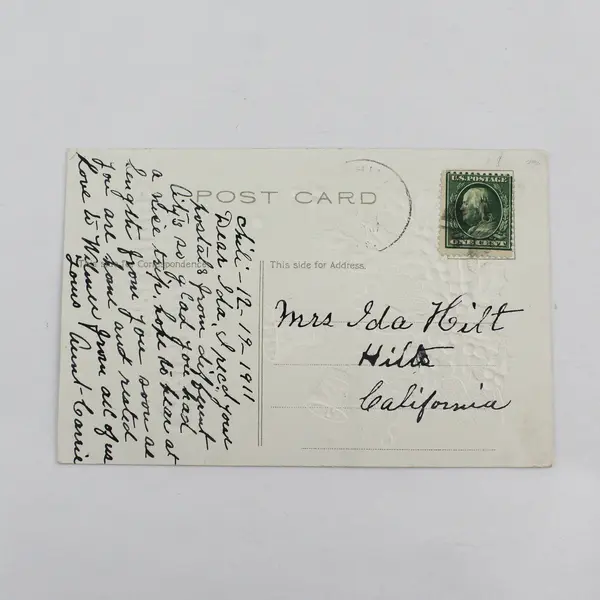 POST CARD
U.S. POSTAGE
ONE CENT
Correspondence
This side for Address.
Chili - 12-19-1911
Dear Ida, I rec'd your
postals from different
City's so glad you had
a nice trip, hope to hear at
length from you soon as
you are home and rested
Love to Wilmer from all of us
Yours Aunt Carrie
Mrs Ida Hilt
Hilts
California